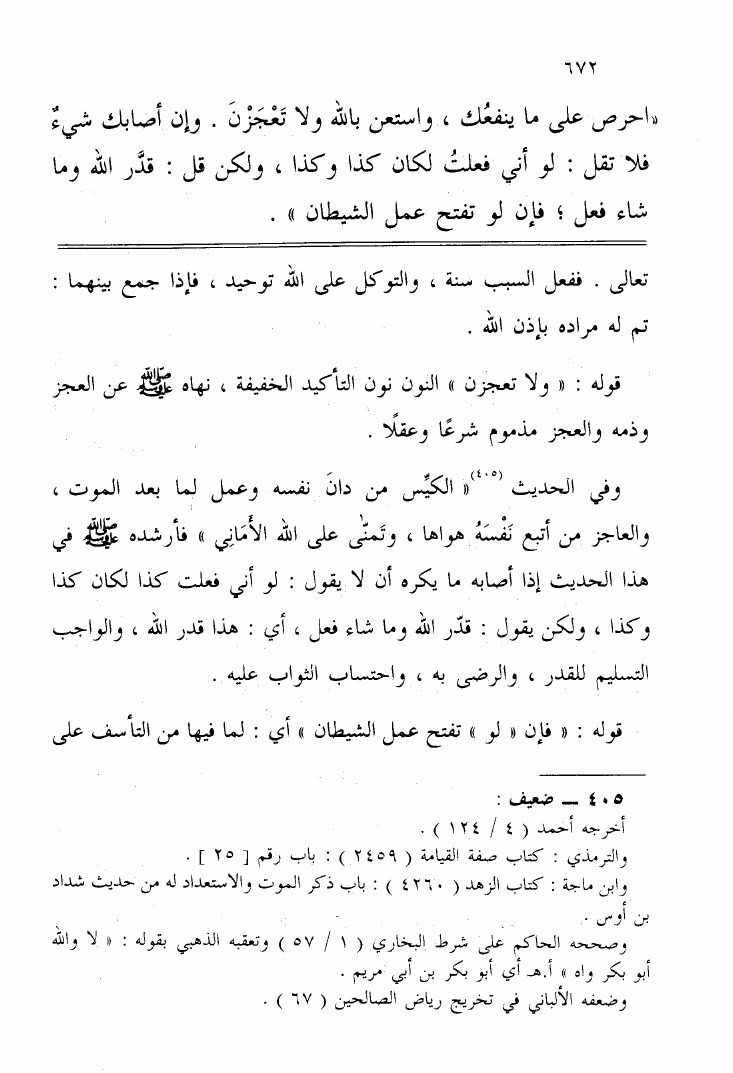 ٦٧٢
«احرص على ما ينفعُك ، واستعن بالله ولا تَعْجَزْنَ . وإن أصابك شيءٌ
فلا تقل : لو أني فعلتُ لكان كذا وكذا ، ولكن قل : قدَّر الله وما
شاء فعل ؛ فإن لو تفتح عمل الشيطان » .
تعالى . ففعل السبب سنة ، والتوكل على الله توحيد ، فإذا جمع بينهما :
تم له مراده بإذن الله .
قوله : « ولا تعجزن » النون نون التأكيد الخفيفة ، نهاه ﷺ عن العجز
وذمه والعجز مذموم شرعًا وعقلًا .
وفي الحديث (٤٠٥)« الكيِّس من دانَ نفسه وعمل لما بعد الموت ،
والعاجز من أتبع نَفْسَهُ هواها ، وتَمنّى على الله الأَمَانِي » فأرشده ﷺ في
هذا الحديث إذا أصابه ما يكره أن لا يقول : لو أني فعلت كذا لكان كذا
وكذا ، ولكن يقول : قدّر الله وما شاء فعل ، أي : هذا قدر الله ، والواجب
التسليم للقدر ، والرضى به ، واحتساب الثواب عليه .
قوله : « فإن « لو » تفتح عمل الشيطان » أي : لما فيها من التأسف على
٤٠٥ ــ ضعيف :
أخرجه أحمد ( ٤ / ١٢٤ ) .
والترمذي : كتاب صفة القيامة ( ٢٤٥٩ ) : باب رقم [ ٢٥ ] .
وابن ماجة : كتاب الزهد ( ٤٢٦٠ ) : باب ذكر الموت والاستعداد له من حديث شداد
بن أوس .
وصححه الحاكم على شرط البخاري ( ١ / ٥٧ ) وتعقبه الذهبي بقوله : « لا والله
أبو بكر واه » أ.هـ أي أبو بكر بن أبي مريم .
وضعفه الألباني في تخريج رياض الصالحين ( ٦٧ ) .